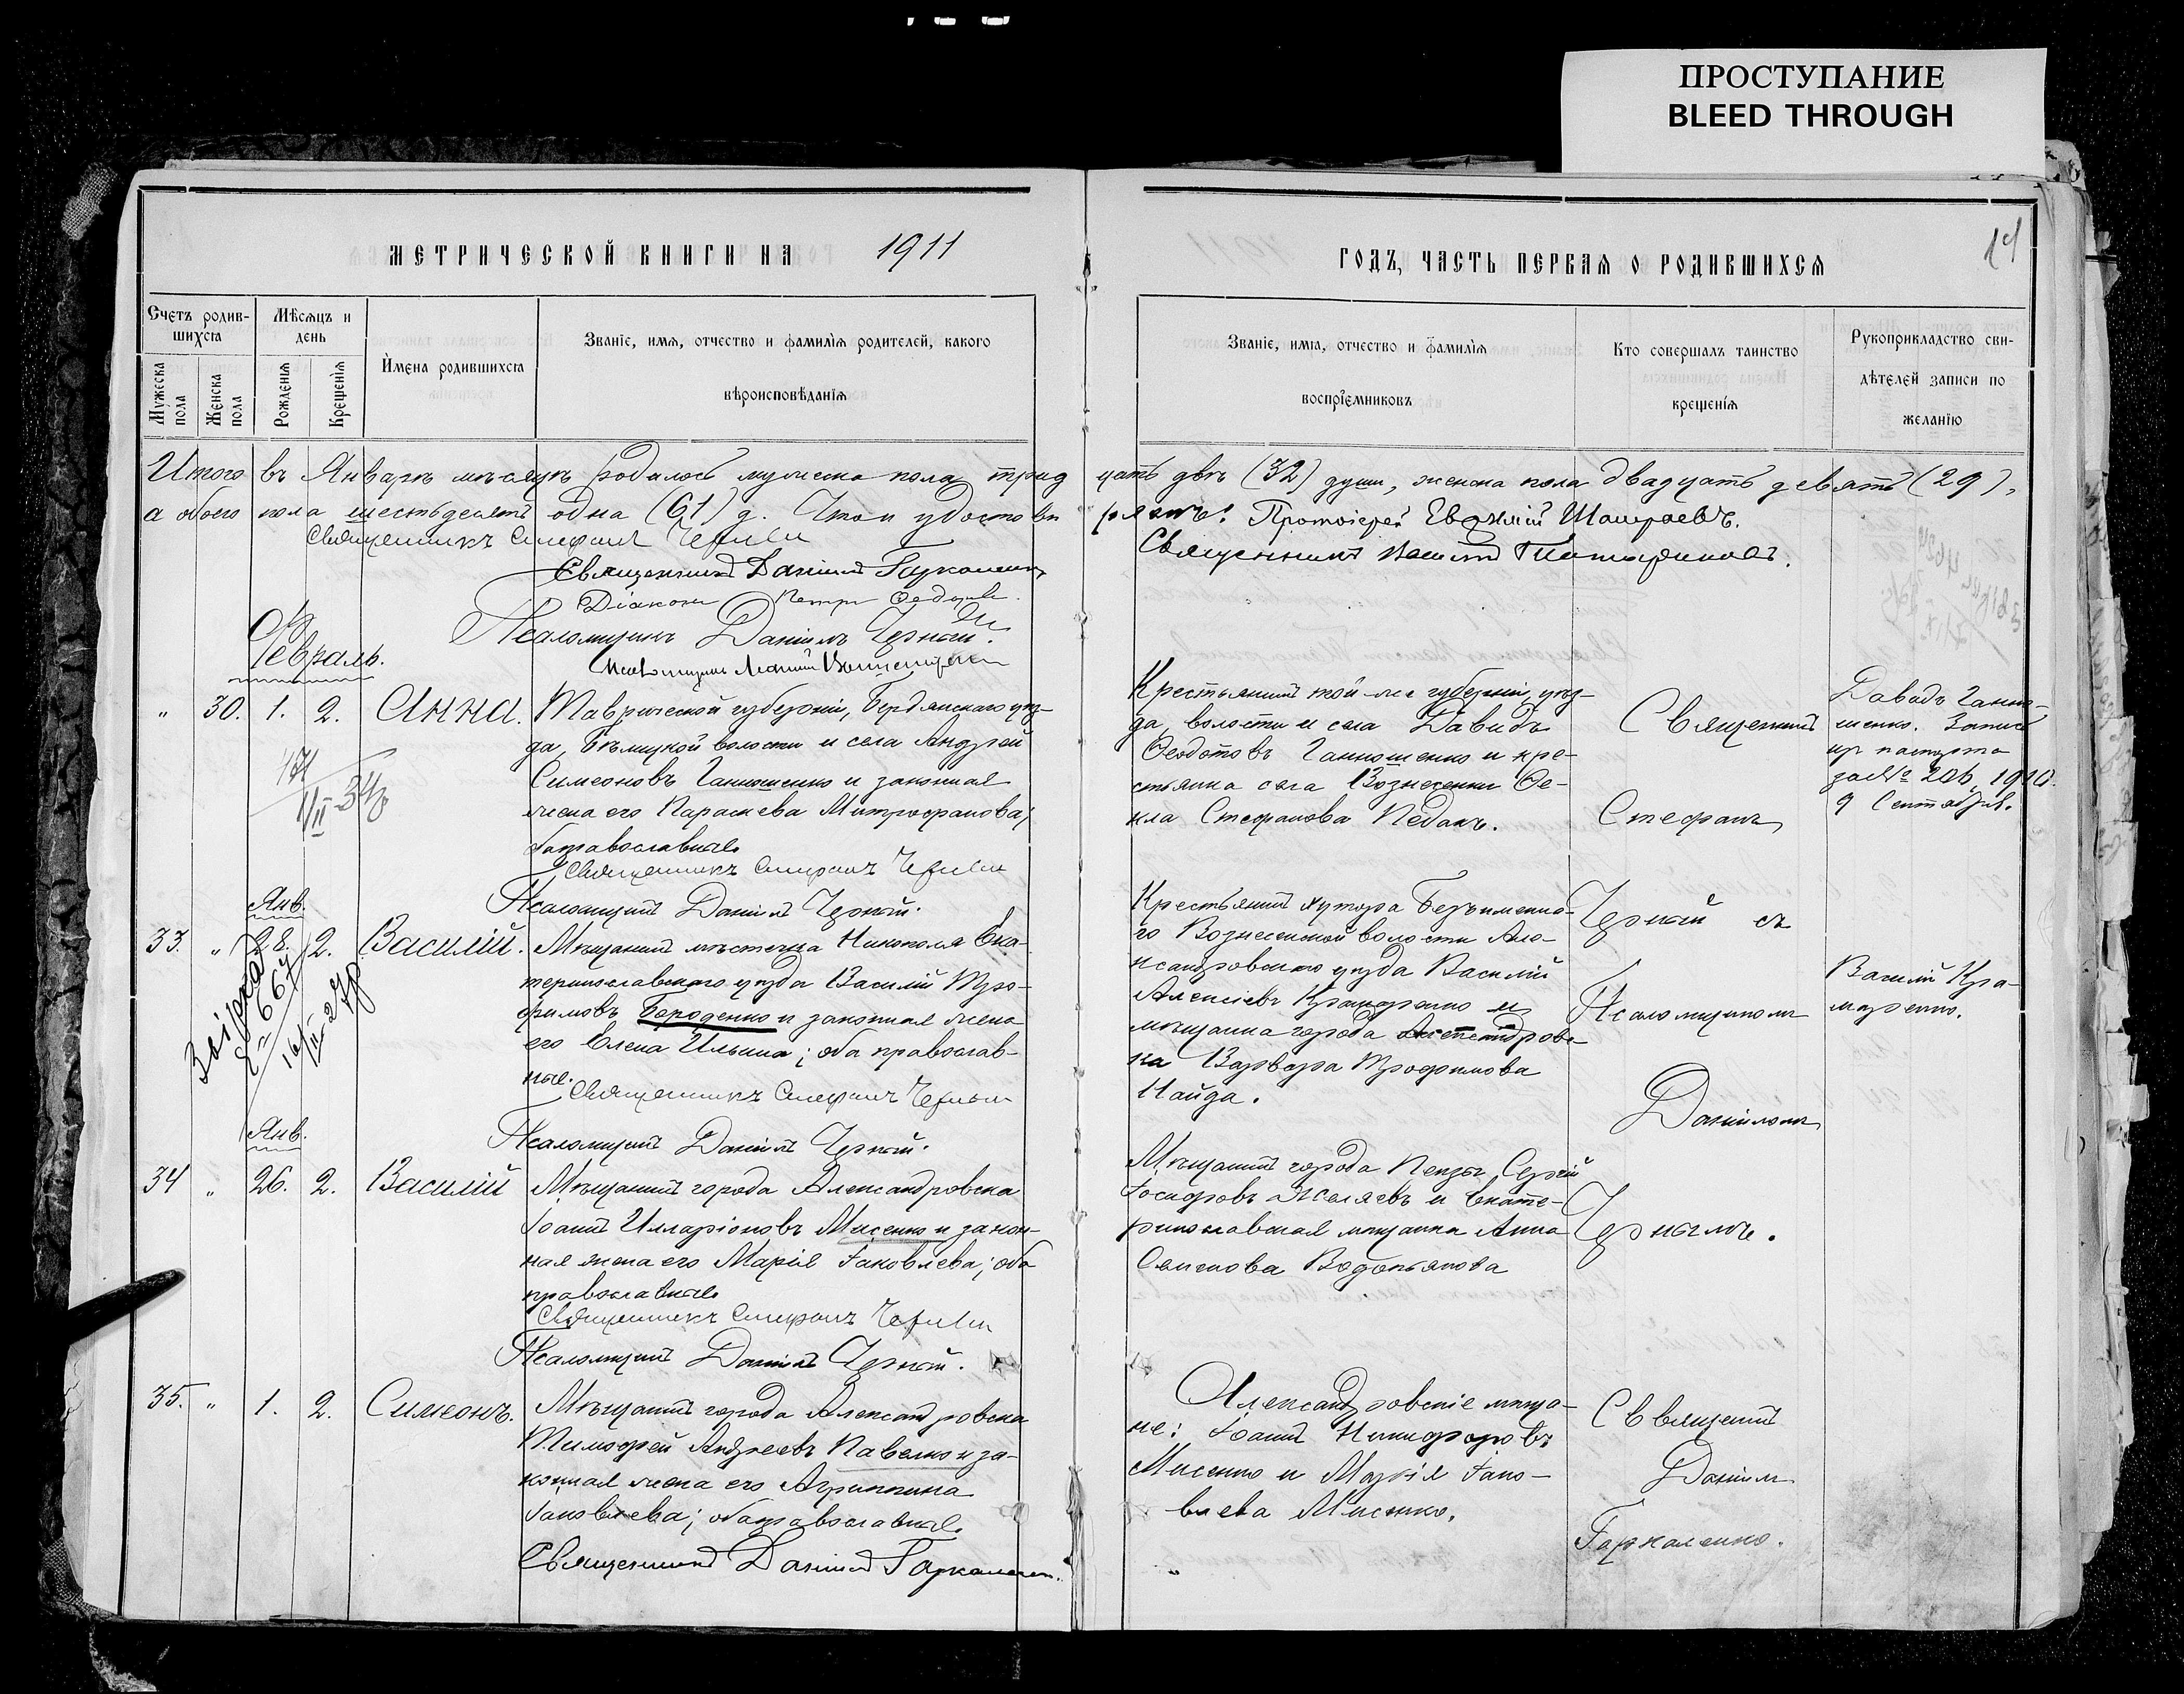 ПРОСТУПАНИЕ
BLEED THROUGH
МЕТРИЧЕСКОЙ КНИГИ НА 1911
ГОДЪ, ЧАСТЬ ПЕРВАЯ О РОДИВШИХСЯ
14
Счетъ родив-
шихся
Мужеска
пола
Женска
пола
Мѣсяцъ и
день
Рожденія
Крещенія
Имена родившихся
Званіе, имя, отчество и фамилія родителей, какого
вѣроисповѣданія
Званіе, имя, отчество и фамилія
воспріемниковъ
Кто совершалъ таинство
крещенія
Рукоприкладство сви-
дѣтелей записи по
желанію
Итого въ Январѣ мѣсяцѣ родилось мужеска пола трид
цать двѣ (32) души, женска пола двадцать девять (29),
а обоего пола шестьдесятъ одна (61) д. Что и удостовѣ
ряютъ: Протоіерей Евѳимій
Священникъ Стефанъ Черный
Священникъ Василій
Священникъ Даніилъ Гаркаленко
Діаконъ Петръ
Псаломщикъ Даніилъ Черный.
Псаломщикъ
Февраль.
" 30. 1. 2. Анна.
Таврической губерніи, Бердянскаго уѣз-
да, волости и села Андрей
Симеоновъ Ганношенко и законная
жена его Параскева Митрофанова;
оба православные
Священникъ Стефанъ Черный
Псаломщикъ Даніилъ Черный.
Крестьянинъ той-же губерніи, уѣз-
да, волости и села Давидъ
Ѳеодотовъ Ганношенко и кре-
стьянка села Вознесенки Ѳе-
кла Стефанова Педакъ.
Священникъ
Стефанъ
Черный съ
Псаломщикомъ
Даніиломъ
Чернымъ.
Давидъ Ганно-
шенко. Запись
пр. паспорта
за № 206, 1910.
9 Сентября.
Янв.
33. " 28. 2. Василій.
667
Мѣщанинъ мѣстечка Никополя Ека-
теринославскаго уѣзда Василій Тро-
фимовъ Бороденко и законная жена
его Елена Ильина; оба православ-
ные.
Священникъ Стефанъ Черный
Псаломщикъ Даніилъ Черный.
Крестьянинъ хутора Безъименно-
го Вознесенской волости Але-
ксандровскаго уѣзда Василій
Алексіевъ Крамаренко и
мѣщанка города Александров-
ка Варвара Трофимова
Найда.
Василій Кра-
маренко.
Янв.
34 " 26. 2. Василій
Мѣщанинъ города Александровска
Іоаннъ Илларіоновъ Мисенко и закон-
ная жена его Марія Іаковлева; оба
православные
Священникъ Стефанъ Черный
Псаломщикъ Даніилъ Черный.
Мѣщанинъ города Пензы Сергій
Іосифовъ Желяевъ и Екате-
ринославская мѣщанка Анна
Семенова Водопьянова
35. " 1. 2. Симеонъ.
Мѣщанинъ города Александровска
Тимофей Андреевъ Павелко и за-
конная жена его Агриппина
Іаковлева; оба православные.
Священникъ Даніилъ Гаркаленко.
Александровскіе мѣща-
не: Іоаннъ Никифоровъ
Мисенко и Марія Іако-
влева Мисенко.
Священникъ
Даніилъ
Гаркаленко.